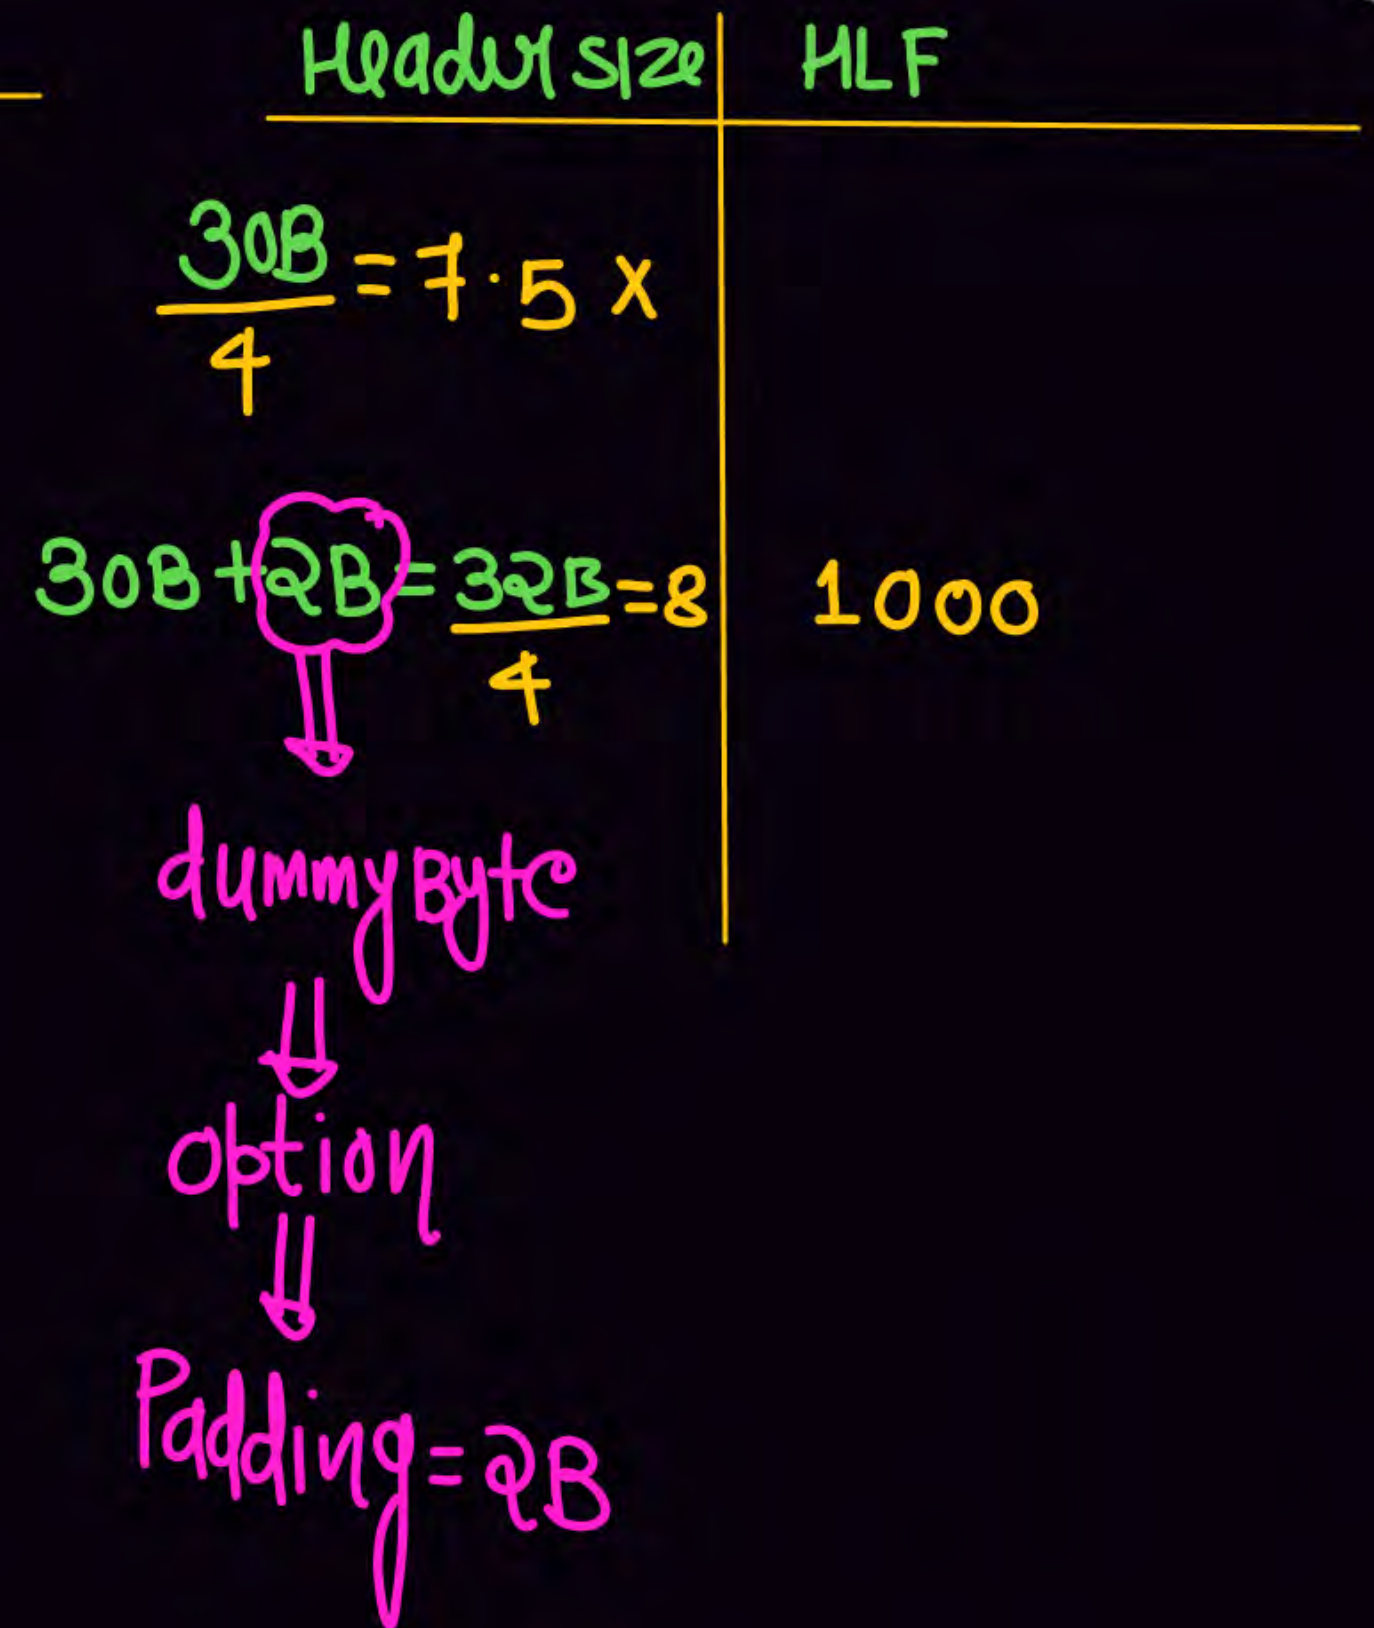 Header size HLF
30B/4 = 7.5 x
30B + 2B = 32B/4 = 8 1000
dummy Byte
option
Padding = 2B